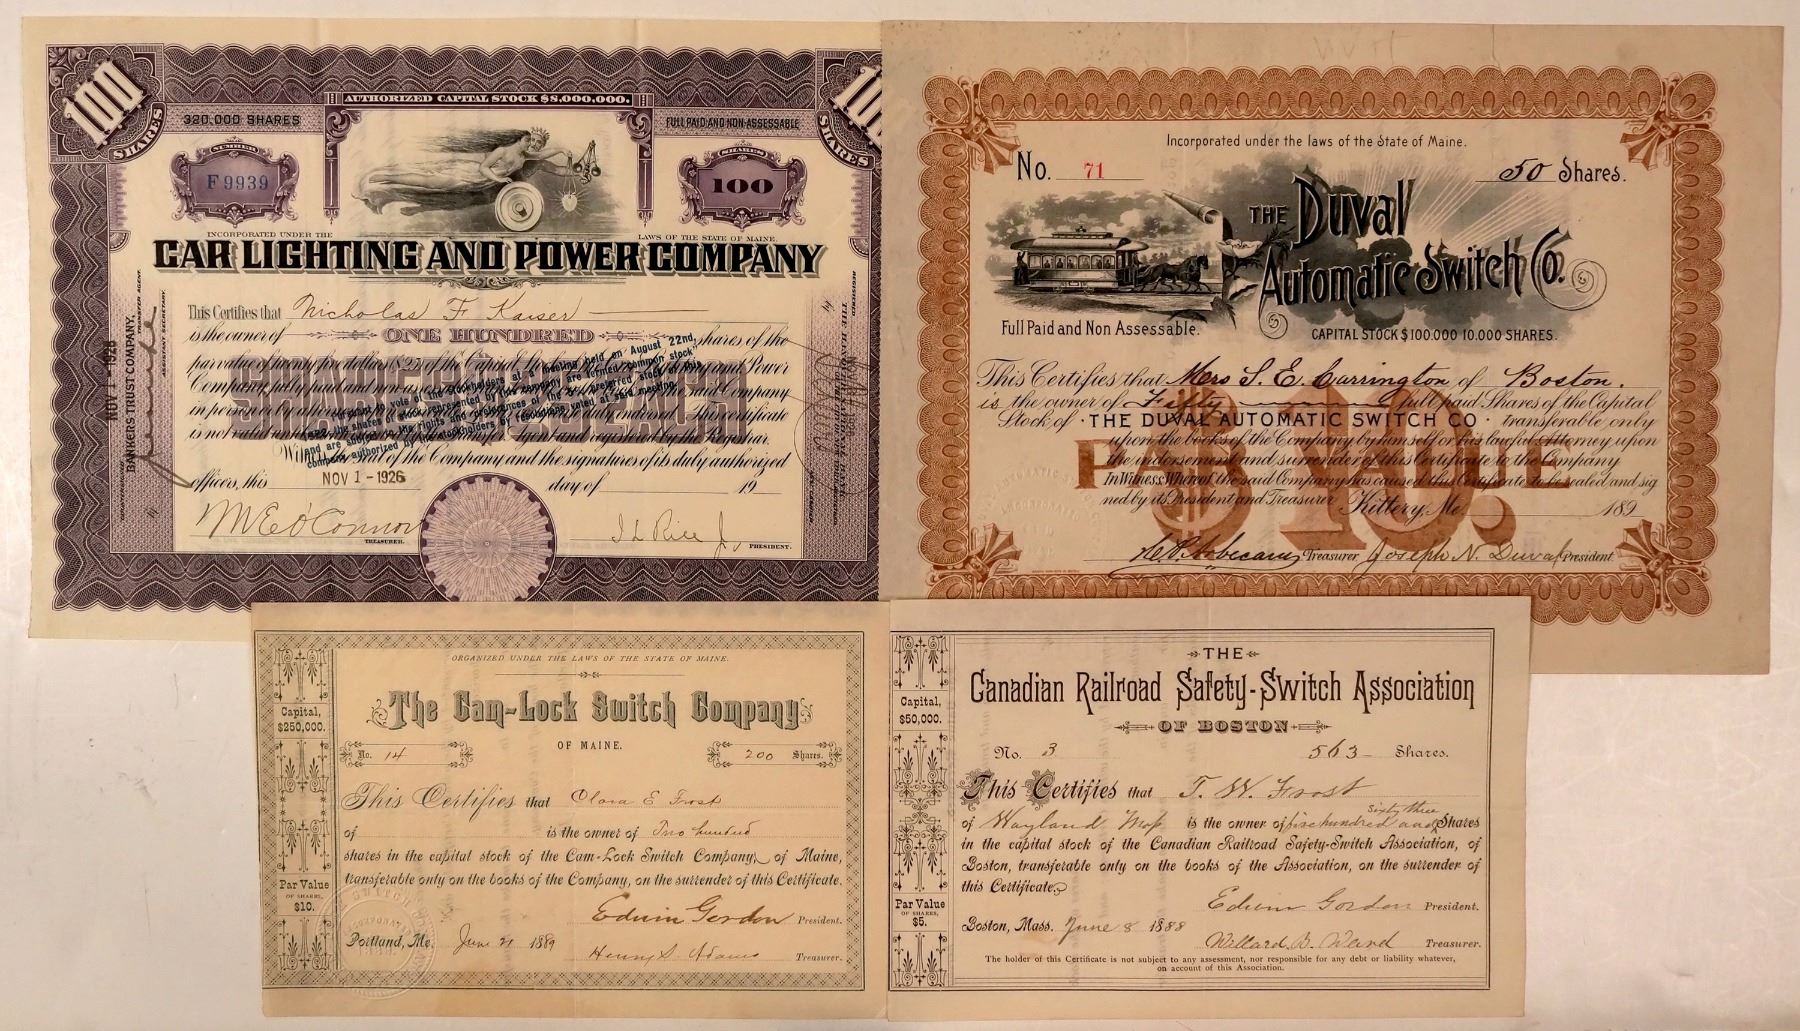 100
SHARES
AUTHORIZED CAPITAL STOCK $8,000,000.
320,000 SHARES
FULL PAID AND NON-ASSESSABLE
SHARES
NUMBER
F 9939
SHARES
100
INCORPORATED UNDER THE
LAWS OF THE STATE OF MAINE.
CAR LIGHTING AND POWER COMPANY
This Certifies that Nicholas F. Kaiser
is the owner of ONE HUNDRED shares of the
par value of
Company, fully paid and
in person or by
is not valid
of the Company and the signatures of its duly authorized
officers, this NOV 1 - 1926 day of 19
TREASURER.
PRESIDENT.
NOV 1 - 1926
BANKERS TRUST COMPANY,
ASSISTANT SECRETARY.
REGISTERED
Incorporated under the laws of the State of Maine.
No. 71
50 Shares.
THE Duval
Automatic Switch Co.
Full Paid and Non Assessable.
CAPITAL STOCK $100.000 10.000 SHARES.
This Certifies that Mrs S. E. Carrington of Boston.
is the owner of Fifty full paid Shares of the Capital
Stock of THE DUVAL AUTOMATIC SWITCH CO. transferable only
upon the books of the Company by himself or his lawful Attorney upon
the indorsement and surrender of this Certificate to the Company
In Witness Whereof the said Company has caused this Certificate to be sealed and sig
ned by its President and Treasurer Kittery, Me. 189
Treasurer Joseph N. Duval President.
$10.
ORGANIZED UNDER THE LAWS OF THE STATE OF MAINE.
The Cam-Lock Switch Company
OF MAINE.
Capital,
$250,000.
No. 14
200 Shares.
This Certifies that Clara E Frost
of is the owner of Two hundred
shares in the capital stock of the Cam-Lock Switch Company, of Maine,
transferable only on the books of the Company, on the surrender of this Certificate.
Par Value
OF SHARES,
$10.
Edwin Gordon President.
Portland, Me. June 21 1889
Henry S. Adams Treasurer.
THE
Canadian Railroad Safety-Switch Association
OF BOSTON
Capital,
$50,000.
No. 3
563 Shares.
This Certifies that T. W. Frost
of Wayland Mass is the owner of five hundred and sixty three Shares
in the capital stock of the Canadian Railroad Safety-Switch Association, of
Boston, transferable only on the books of the Association, on the surrender of
this Certificate.
Par Value
OF SHARES,
$5.
Edwin Gordon President.
Boston, Mass. June 8 1888
Willard B. Ward Treasurer.
The holder of this Certificate is not subject to any assessment, nor responsible for any debt or liability whatever,
on account of this Association.